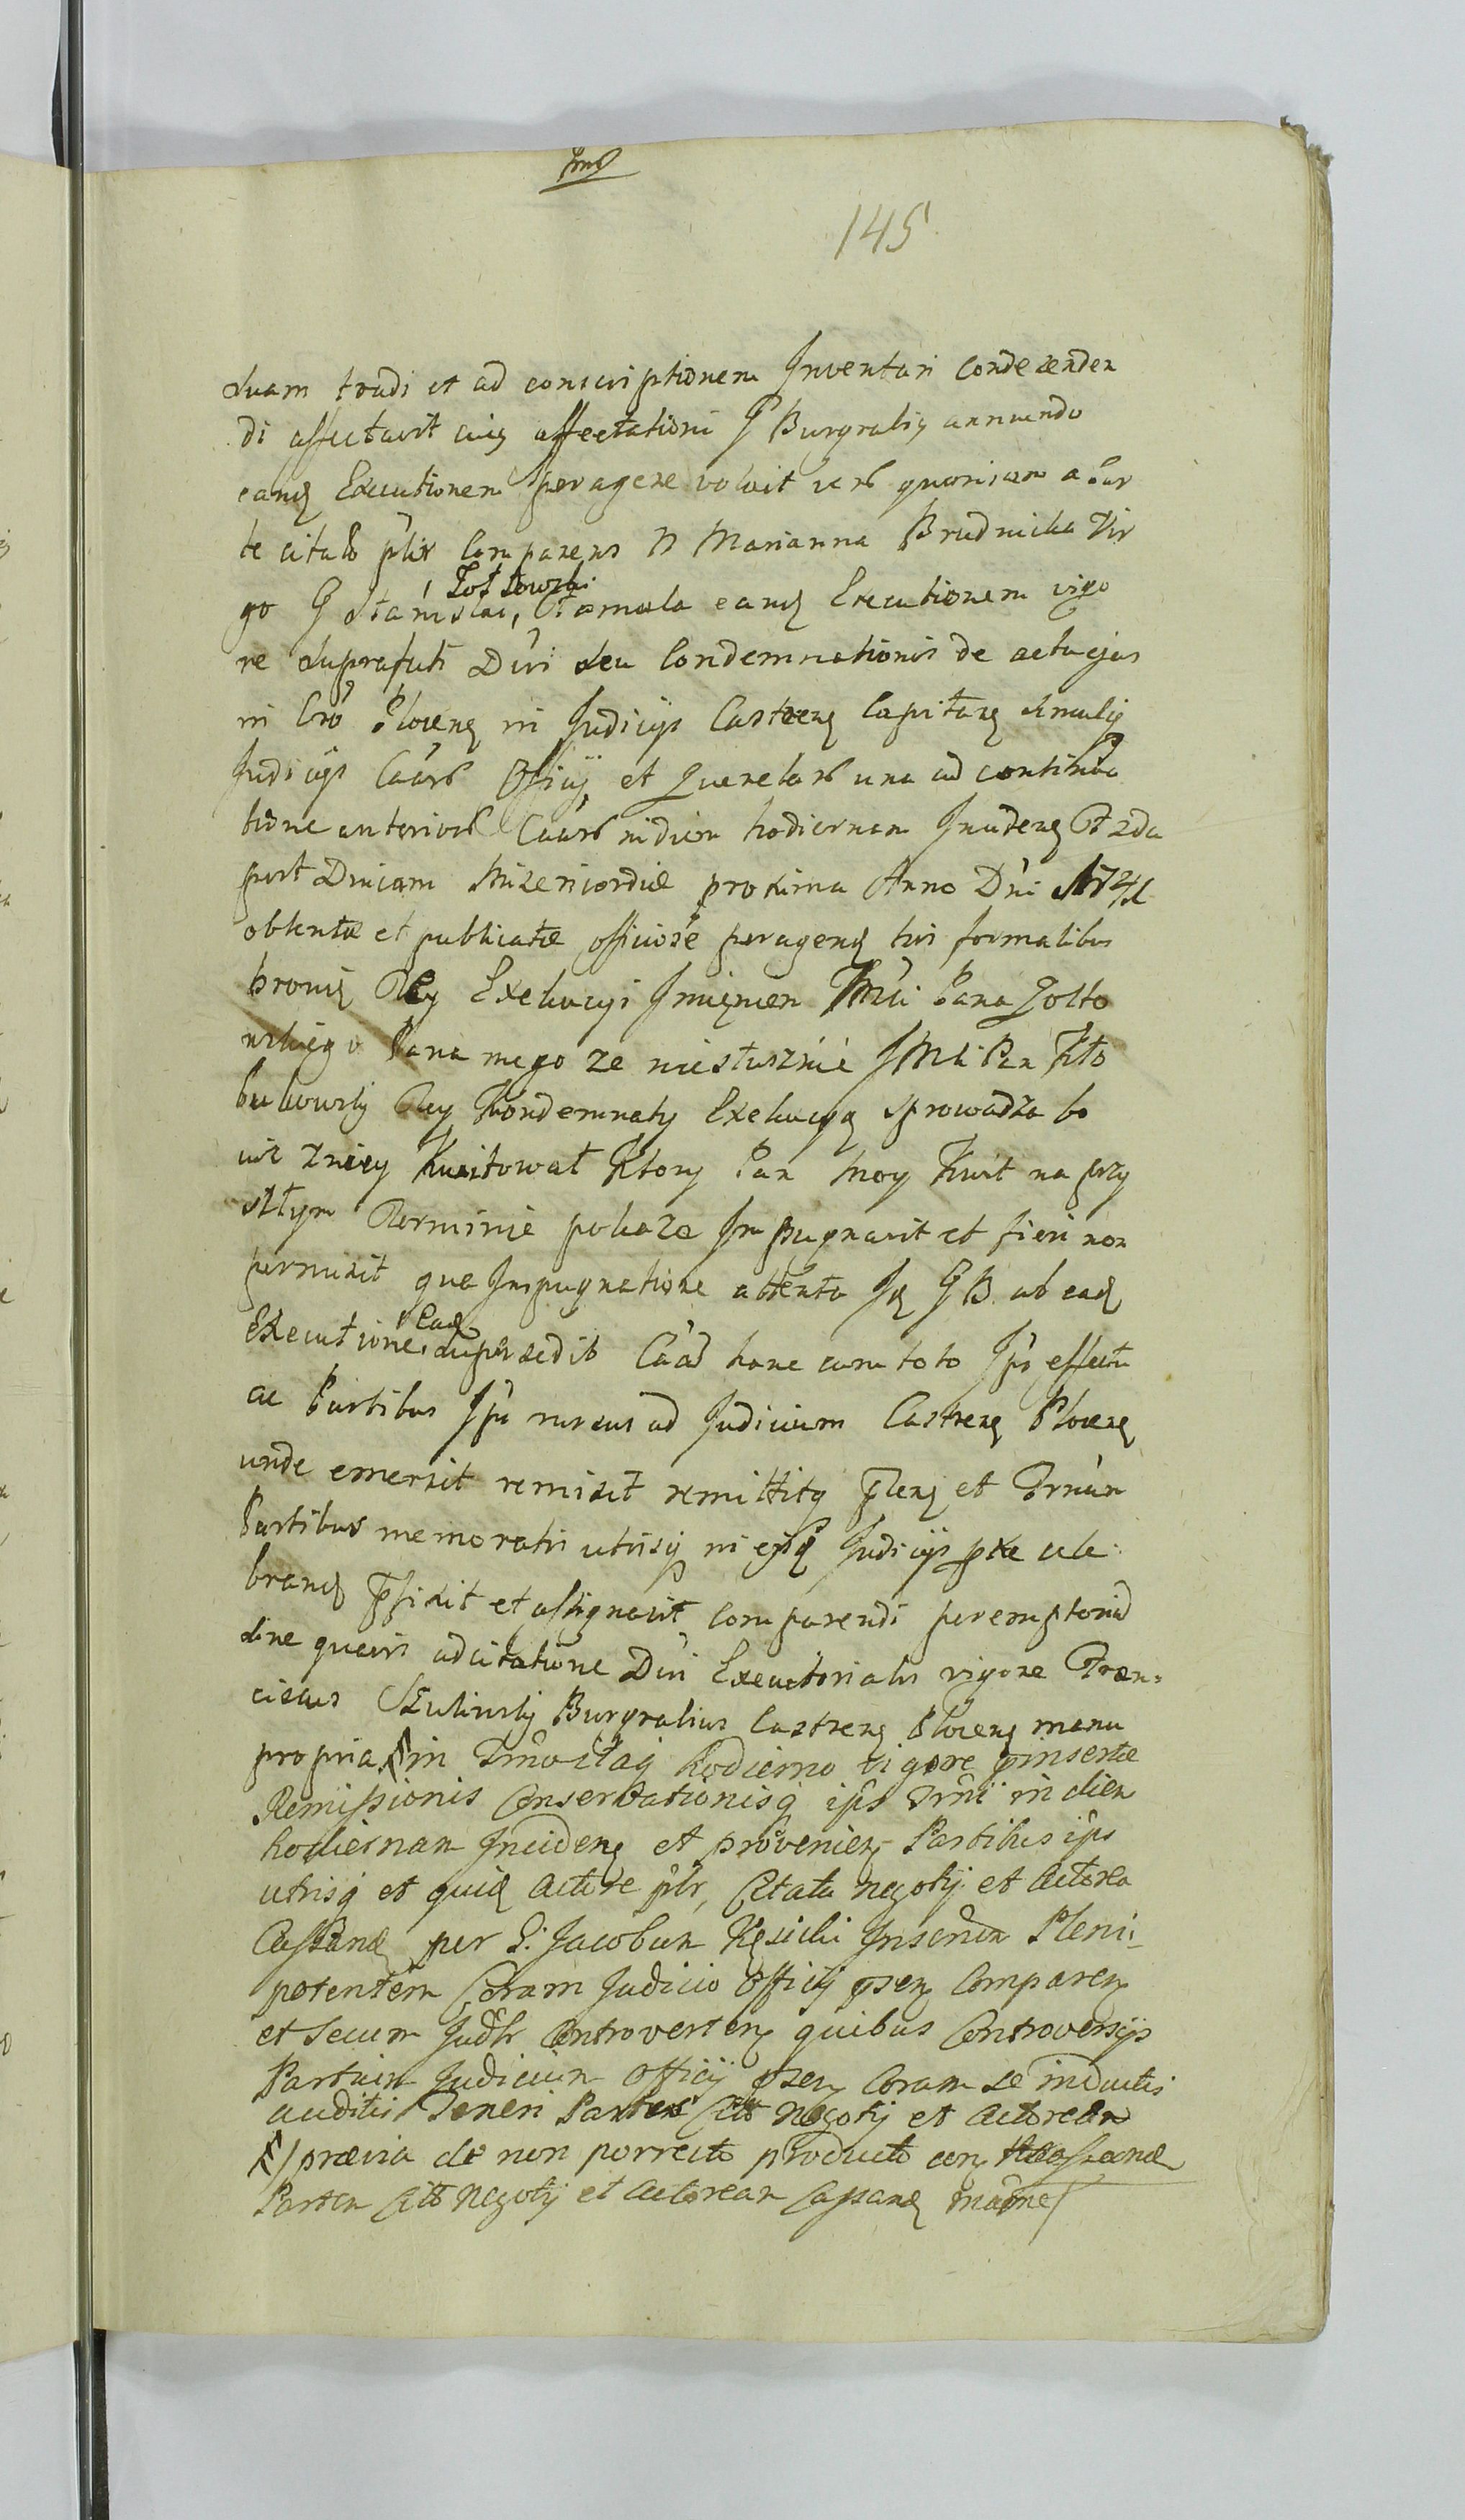 145
duam tradi et ad conscriptionem Inventari condescenden
di affectavit cuiq affectationi G Burgrabiq annuendo
eanq Executionem peragere voluit vero quoniam a Par
te citata Comparens N Marianna Brudnicka Vir
go G Stanislai, Żołtowski Famula eanq Executionem vigo
re suprafati Dni seu Condemnationis de actu ejus
in Cro Plocenq in Judicijs Castrenq Capitanq simulq
Judicijs Caarb Officij et Querelarb una ad continua
tione anteriorb Caarb in diem hodiernam Incidenq F 2da
post Dnicam Misericordiæ proxima Anno Dni 1724
obtentæ et publicatæ officiose peragenq his formalibus
bronię Tey Exekucyi Imięniem Imci Pana Zołto
wskiego Pana mego ze niesłusznie JMci Pan Kło
bukowsky Tey Kondemnaty Exekucyą sprowadza bo
iuz zniey Kwitował Ktory Pan Moy Kwit na przy
szłym Terminie pokaze Impugnavit et fieri non
permisit qua Impugnatione attenta Iq G B. ab eaq
Executione, Eaq supersedit Caas hanc cum toto Ipo effectu
ac Partibus Ipu rursus ad Judicium Castrenq Plocenq
unde emersit remisit remittitq et Trnun
Partibus memoratis utrisq in ejsq Judicijs cele
branq et assignavit Comparendi peremptorid
sine quavis adcitatione Dni Executorialis vigore Fran=
ciscus Szulinsky Burgrabius Castrenq Plocenq manu
propria in Trno itaq hodierno vigore pinsertæ
Remissionis Conservationisq ips Trni in diem
hodiernam Incidenq et provenienq Partibus ips
utrisq et quiq Actore plr, Citata negotij et Actorea
Cassanq per G. Jacobum Kęsicki Inserum Pleni=
potentem Coram Judicio Officij psenq Comparenq
et Secum Judlr Controvertenq quibus Controversijs
Partium Judicium Officij psenq Coram se inductis
auditis Teneri Partem Citt Negotij et Actorean
prævia de non porrecto producto
Partem Citt Negotij et Actorean Cassanq